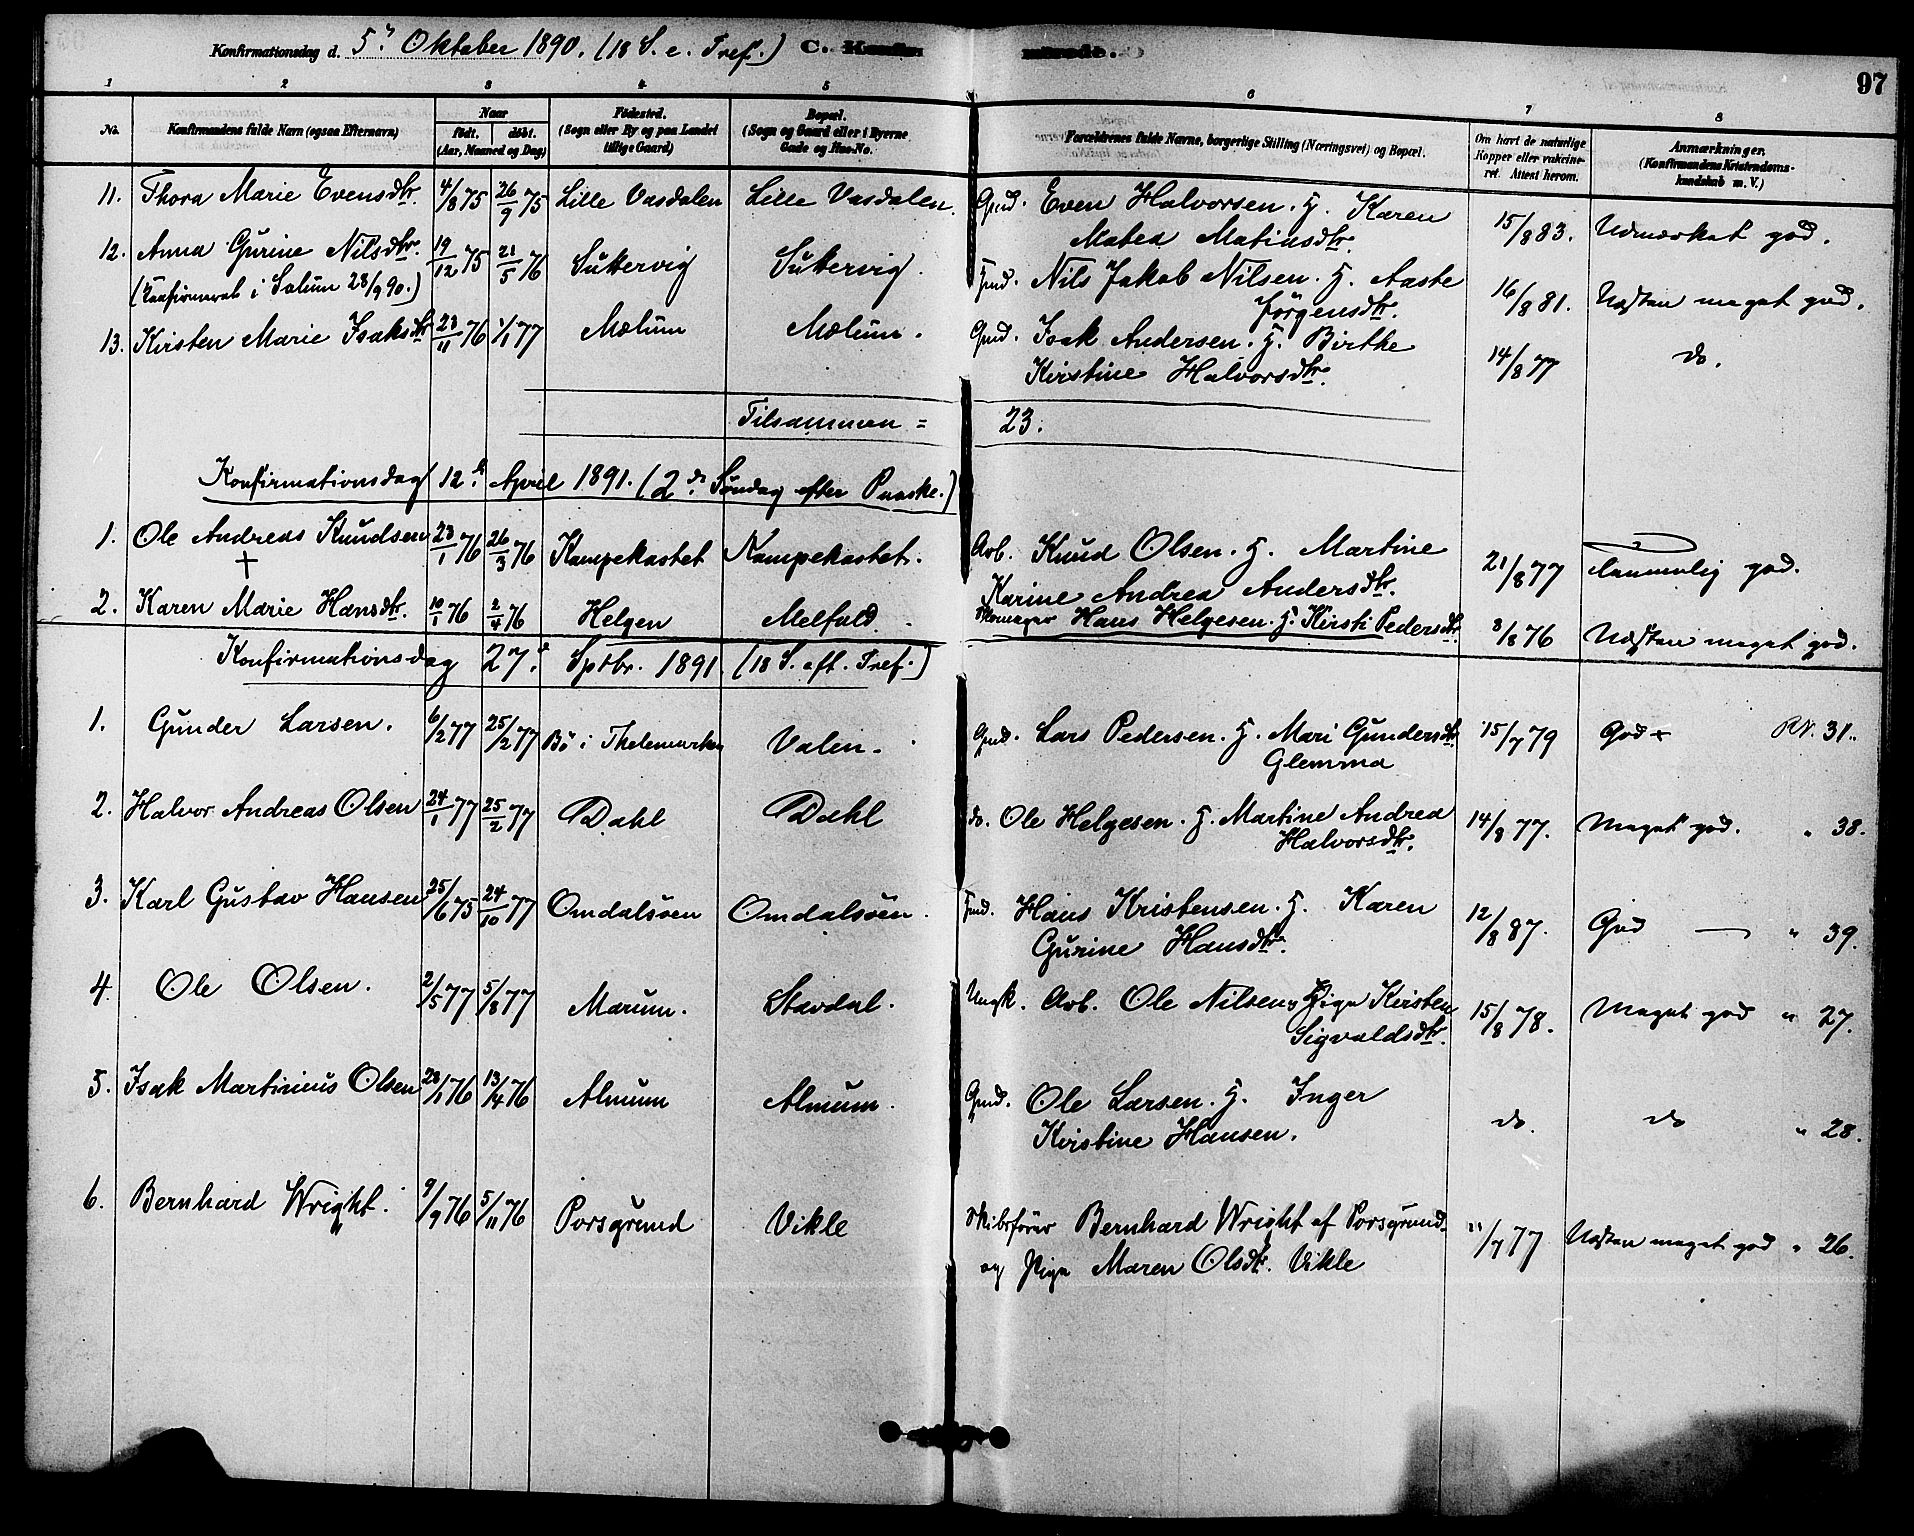 Konfirmationsdag d. 5' Oktober 1890. (18 S. e. Tref.) C. Konfirmerede. 97
1 2 3 4 5 6 7 8
No. Konfirmandens fulde Navn (ogsaa Efternavn) Naar født. døbt. (Aar, Maaned og Dag) Fødested. (Sogn eller By og paa Landet tillige Gaard) Bopæl. (Sogn og Gaard eller i Byerne Gade og Hus-No. Forældrenes fulde Navne, borgerlige Stilling (Næringsvei) og Bopæl. Om havt de naturlige Kopper eller vakcineret. Attest herom. Anmærkninger. (Konfirmandens Kristendomskundskab m. V.)
11. Thora Marie Evensdtr. 4/8 75 26/9 75 Lille Vasdalen Lille Vasdalen. Gmd. Even Halvorsen. H. Karen
Mabea Matiasdtr. 15/8 83. Udmærket god.
12. Anna Gurine Nilsdtr. 19/12 75 21/5 76 Suttervig Suttervig. Hmd. Nils Jakob Nilsen. H. Aaste
(Konfirmeret i Solum 28/9 90.) Jörgensdtr. 16/8 81. Næsten meget god.
13. Kirsten Marie Isaksdtr 23/11 76 1/1 77 Mælum Mælum. Gmd. Isak Andersen. H. Birthe
Kirstine Halvorsdtr. 14/8 77 do.
Tilsammen = 23.
Konfirmationsdag 12. April 1891. (2den Søndag efter Paaske.)
1. Ole Andreas Knudsen 23/1 76 26/3 76 Kampekastet Kampekastet. Arb. Knud Olsen. H. Martine
+ Karine Andrea Andersdtr. 21/8 77 Temmelig god.
2. Karen Marie Hansdtr. 10/1 76 2/4 76 Helgen Melfald. Skomager Hans Helgesen. H. Kirsti Pedersdtr. 3/8 76 Næsten meget god.
Konfirmationsdag 27. Sptbr. 1891. (18 S. eft. Tref.)
1. Gunder Larsen. 6/2 77 25/2 77 Bö i Thelemarken Valen. Gmd. Lars Pedersen. H. Mari Gundersdtr.
Glemma 15/7 79 God + RN. 31.
2. Halvor Andreas Olsen 24/1 77 25/2 77 Dahl Dahl do. Ole Helgesen. H. Martine Andrea
Halvorsdtr. 14/8 77. Meget god. " 38.
3. Karl Gustav Hansen 25/6 75 24/10 77 Omdalsöen Omdalsöen. Hmd. Hans Kristensen. H. Karen
Gurine Hansdtr. 12/8 87. God — " 39.
4. Ole Olsen. 2/5 77 5/8 77 Marum. Stavdal. Ungk. Arb. Ole Nilsen, Pige Kirsten
Sigvaldsdtr. 15/8 78. Meget god " 27.
5. Isak Martinius Olsen 28/1 76 13/4 76 Almum Almum. Gmd. Ole Larsen. H. Inger
Kristine Hansen. do. do " 28.
6. Bernhard Wright. 9/9 76 5/11 76 Porsgrund Vikle Skibsförer Bernhard Wright af Porsgrund
og Pige Maren Olsdtr. Vikle 11/7 77 Næsten meget god " 26.